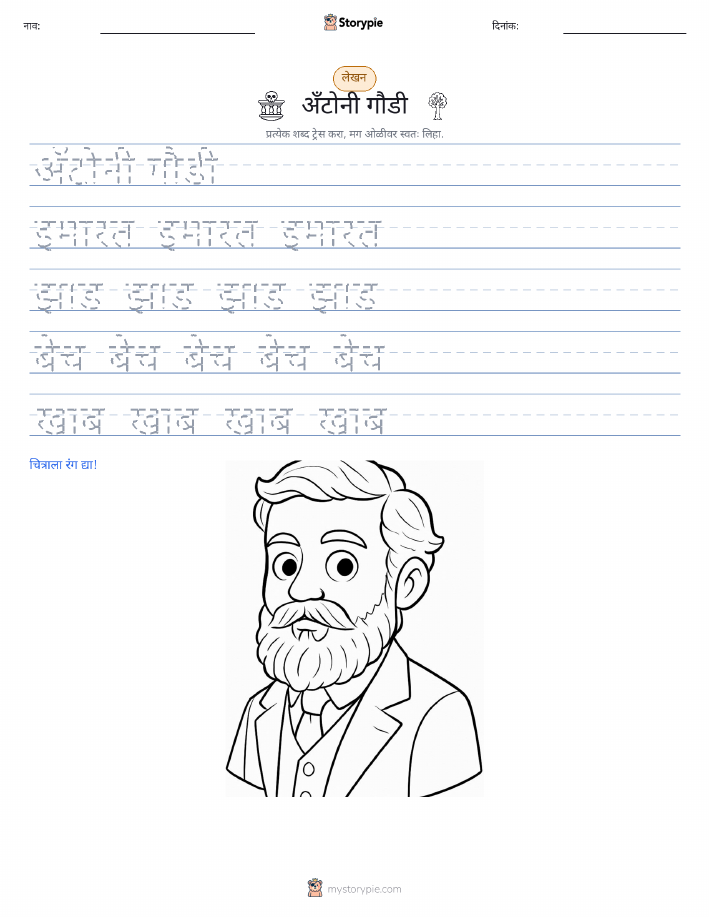 नाव:
Storypie
दिनांक:
लेखन
अँटोनी गौडी
प्रत्येक शब्द ट्रेस करा, मग ओळीवर स्वतः लिहा.
अँटोनी गौडी
इमारत इमारत इमारत
झाड झाड झाड झाड
बेंच बेंच बेंच बेंच बेंच
खांब खांब खांब खांब
चित्राला रंग द्या!
mystorypie.com